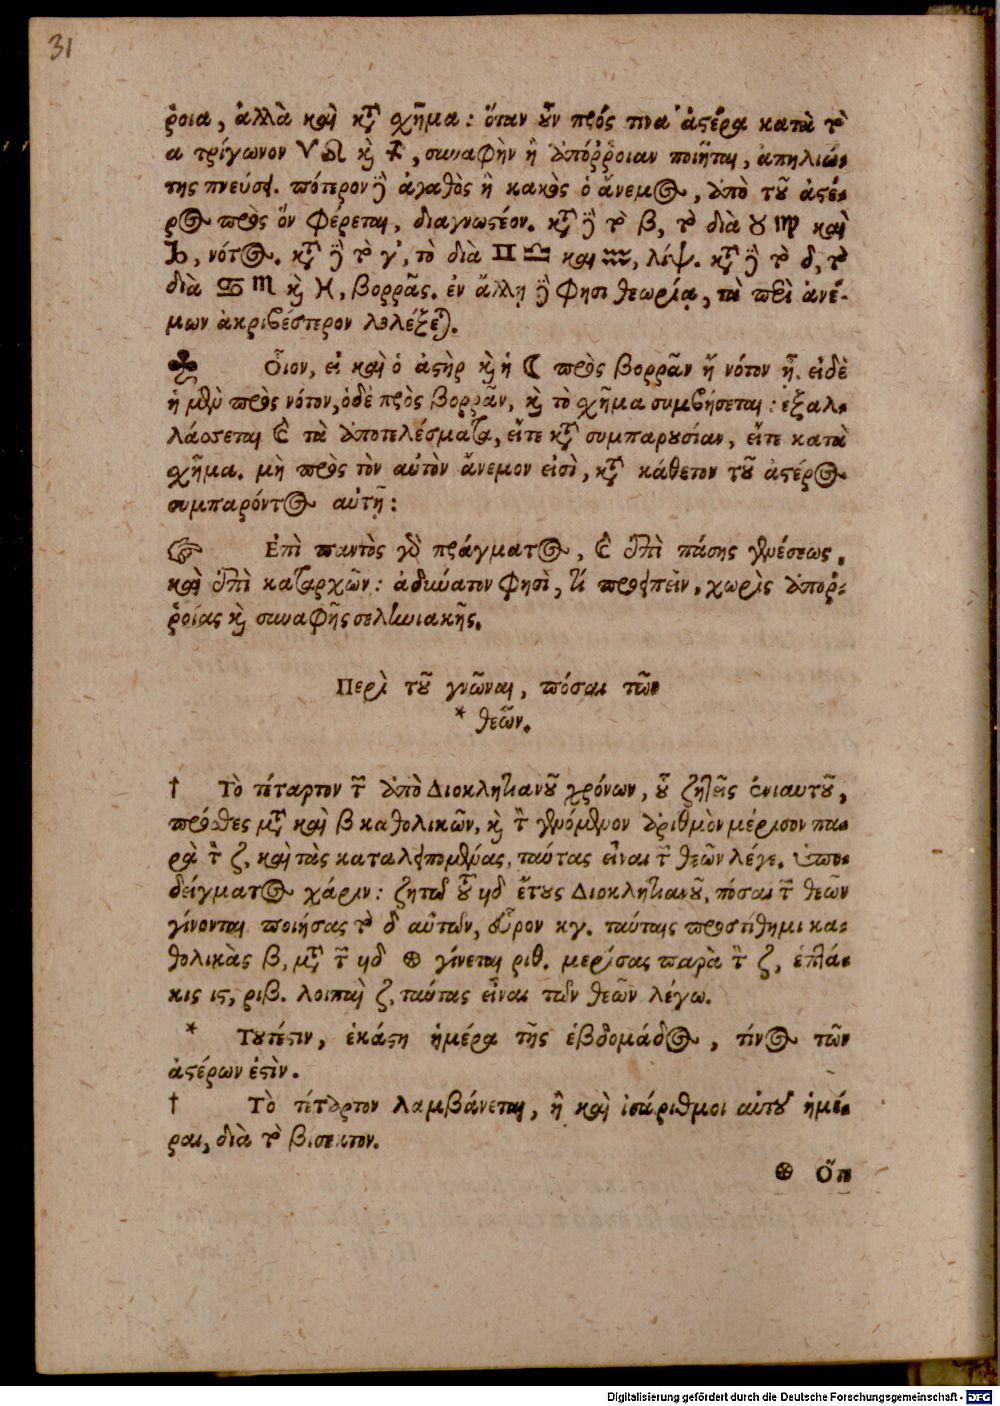 31
ῥοια, ἀλλὰ καὶ κτ̃ χῆμα: ὅταν ȣ̃ν πρός τινα ἀστέρα κατὰ τὸ
α τρίγωνον ♈ ♌ κὶ ♐, συναφὴν ἢ ἀπόῤῥοιαν ποιῆται, ἀπηλιώ-
της πνεύσει. πότερον δὲ ἀγαθὸς ἢ κακὸς ὁ ἄνεμος, ἀπὸ τȣ̃ ἀστέ-
ρος πρὸς ὃν φέρεται, διαγνωστέον. κτ̃ δὲ τὸ β, τὸ διὰ ♉ ♍ καὶ
♑, νότος. κτ̃ δὲ τὸ γ, τὸ διὰ ♊ ♎ και ♒, λίψ. κτ̃ δὲ τὸ δ, τὸ
διὰ ♋ ♏ κὶ ♓, βορρᾶς. ἐν ἄλλῃ δὲ φησι θεωρίᾳ, τὰ περὶ ἀνέ-
μων ἀκριβέστερον λελέξεται.
♣ Οἷον, εἰ καὶ ὁ ἀστὴρ κὶ ἡ ☾ πρὸς βορρᾶν ἢ νότον ᾖ. εἰδὲ
ἡ μὲν πρὸς νότον, ὁδὲ πρὸς βορρᾶν, κὶ τὸ χῆμα συμβήσεται: ἐξαλ-
λάσσεται καὶ τὰ ἀποτελέσματα, εἴτε κτ̃ συμπαρȣσίαν, εἴτε κατὰ
χῆμα. μὴ πρὸς τὸν αὐτὸν ἄνεμον εἰσὶ, κτ̃ κάθετον τȣ̃ ἀστέρος
συμπαρόντος αὐτῇ:
☞ Επὶ παντὸς γὰρ πράγματος, καὶ ἐπὶ πάσης γενέσεως,
καὶ ἐπὶ καταρχῶν: ἀδύνατον φησὶ, τί προσειπεῖν, χωρὶς ἀποῤ-
ῥοίας κὶ συναφῆς σεληνιακῆς.
Περὶ τȣ̃ γνῶναι, πόσαι τῶν
* θεῶν.
† Τὸ τέταρτον τῶν ἀπὸ Διοκλητιανȣ̃ χρόνων, ȣ̃ ζητεῖς ἐνιαυτȣ̃,
πρόσθες μτ̃ καὶ β καθολικῶν, κὶ τὸν γενόμενον ἀριθμὸν μέρισον πα-
ρὰ τὸν ζ, καὶ τὰς καταλειπομένας, ταύτας εἶναι τῶν θεῶν λέγε. ὑπο-
δείγματος χάριν: ζητῶ ȣ̃ν ϟδ ἔτȣς Διοκλητιανȣ̃, πόσαι τῶν θεῶν
γίνονται. ποιήσας τὸ δ αὐτῶν, εὗρον κγ. ταύταις προστίθημι κα-
θολικὰς β, μτ̃ τῶν ϟδ ⊛ γίνεται ριθ. μερίσας παρὰ τὸν ζ, ἑπτά-
κις ις, ριβ. λοιπαὶ ζ, ταύτας εἶναι τῶν θεῶν λέγω.
* Τȣτέστιν, ἑκάστη ἡμέρα τῆς ἑβδομάδος, τίνος τῶν
ἀστέρων ἐστὶν.
† Τὸ τέταρτον λαμβάνεται, ἢ καὶ ἰσάριθμοι αὐτȣ̃ ἡμέ-
ραι, διὰ τὸ βίσεκτον.
⊛ Ὅπ
Digitalisierung gefördert durch die Deutsche Forschungsgemeinschaft - DFG